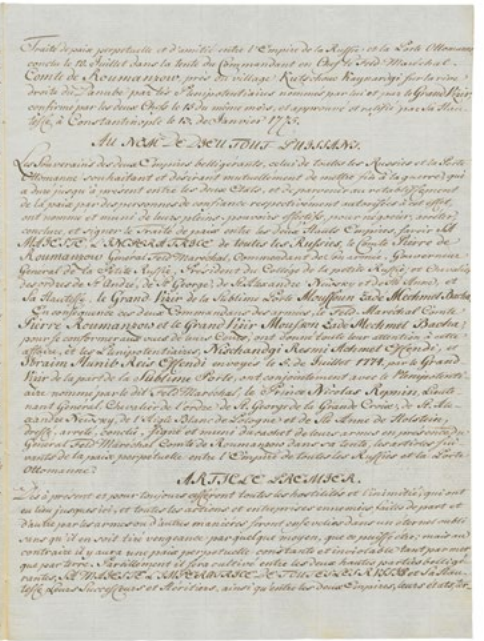 Traité de paix perpetuelle et d'amitié entre l'Empire de la Russie et la Porte Ottomane
conclu le 10 Juillet dans la tente du Commandant en Chef le Feld Maréchal
Comte de Roumanzow, près du village Kutschouc Kaynardgi sur la rive
droite du Danube par les Plenipotentiaires nommés par lui et par le Grand Vizir,
confirmé par les deux Chefs le 15 du même mois, et approuvé et ratifié par Sa Hau-
tesse, à Constantinople le 13 de Janvier 1775.
AU NOM DE DIEU TOUT PUISSANT.
Les Souverains des deux Empires belligérants, celui de toutes les Russies et la Porte
Ottomanne souhaitant et désirant mutuellement de mettre fin à la guerre, qui
a duré jusqu'à présent entre les deux Etats, et de parvenir au retablissement
de la paix par des personnes de confiance respectivement autorisées à cet effet,
ont nommé et muni de leurs pleins-pouvoirs effectifs, pour négocier, arrêter,
conclure, et signer le Traité de paix entre les deux Hauts Empires, savoir SA
MAJESTE L'IMPERATRICE de toutes les Russies, le Comte Pierre de
Roumanzow General Feld Maréchal, Commandant de l'armée, Gouverneur
General de la Petite Russie, Président du Collège de la petite Russie, et Chevalier
des ordres de St André, de St George, de St Alexandre Newsky et de Ste Anne, et
Sa Hautesse, le Grand Vizir de la Sublime Porte Mousson Zade Mechmet Bacha.
En consequence ces deux Commandans des armées, le Feld Maréchal Comte
Pierre Roumanzow et le Grand Vizir Mousson Zade Mechmet Bacha,
pour se conformer aux vues de leurs Cours, ont donné toute leur attention à cette
affaire, et les Plenipotentiaires, Nischandgi Resmi Achmet Effendi, et
Ibraim Munib Reis Effendi envoyés le 5 de Juillet 1774 par le Grand
Vizir de la part de la Sublime Porte, ont conjointement avec le Plenipotenti-
aire nommé par le dit Feld Maréchal, le Prince Nicolas Repnin, Lieute-
nant General, Chevalier de l'ordre de St George de la Grande Croix, de St Ale-
xandre Newsky, de l'Aigle Blanc de Pologne et de Ste Anne de Holstein,
dressé, arrêté, conclu, signé et muni du cachet de leurs armes, en présence du
General Feld Maréchal Comte de Roumanzow dans sa tente, les articles sui-
vants de la paix perpetuelle entre l'Empire de toutes les Russies et la Porte
Ottomanne.
ARTICLE PREMIER.
Dès à present et pour toujours cesseront toutes les hostilités et l'inimitié, qui ont
eu lieu jusques ici, et toutes les actions et entreprises ennemies faites de part et
d'autre par les armes ou d'autres manières seront ensevelies dans un éternel oubli
sans qu'il en soit tiré vengeance par quelque moyen, que ce puisse être; mais au
contraire il y aura une paix perpetuelle constante et inviolable tant par mer
que par terre. Pareillement il sera cultivé entre les deux hautes parties bellige-
rantes, SA MAJESTE L'IMPERATRICE DE TOUTES LES RUSSIES et Sa Hau-
tesse, leurs Successeurs et Heritiers, ainsi qu'entre les deux Empires, leurs états,